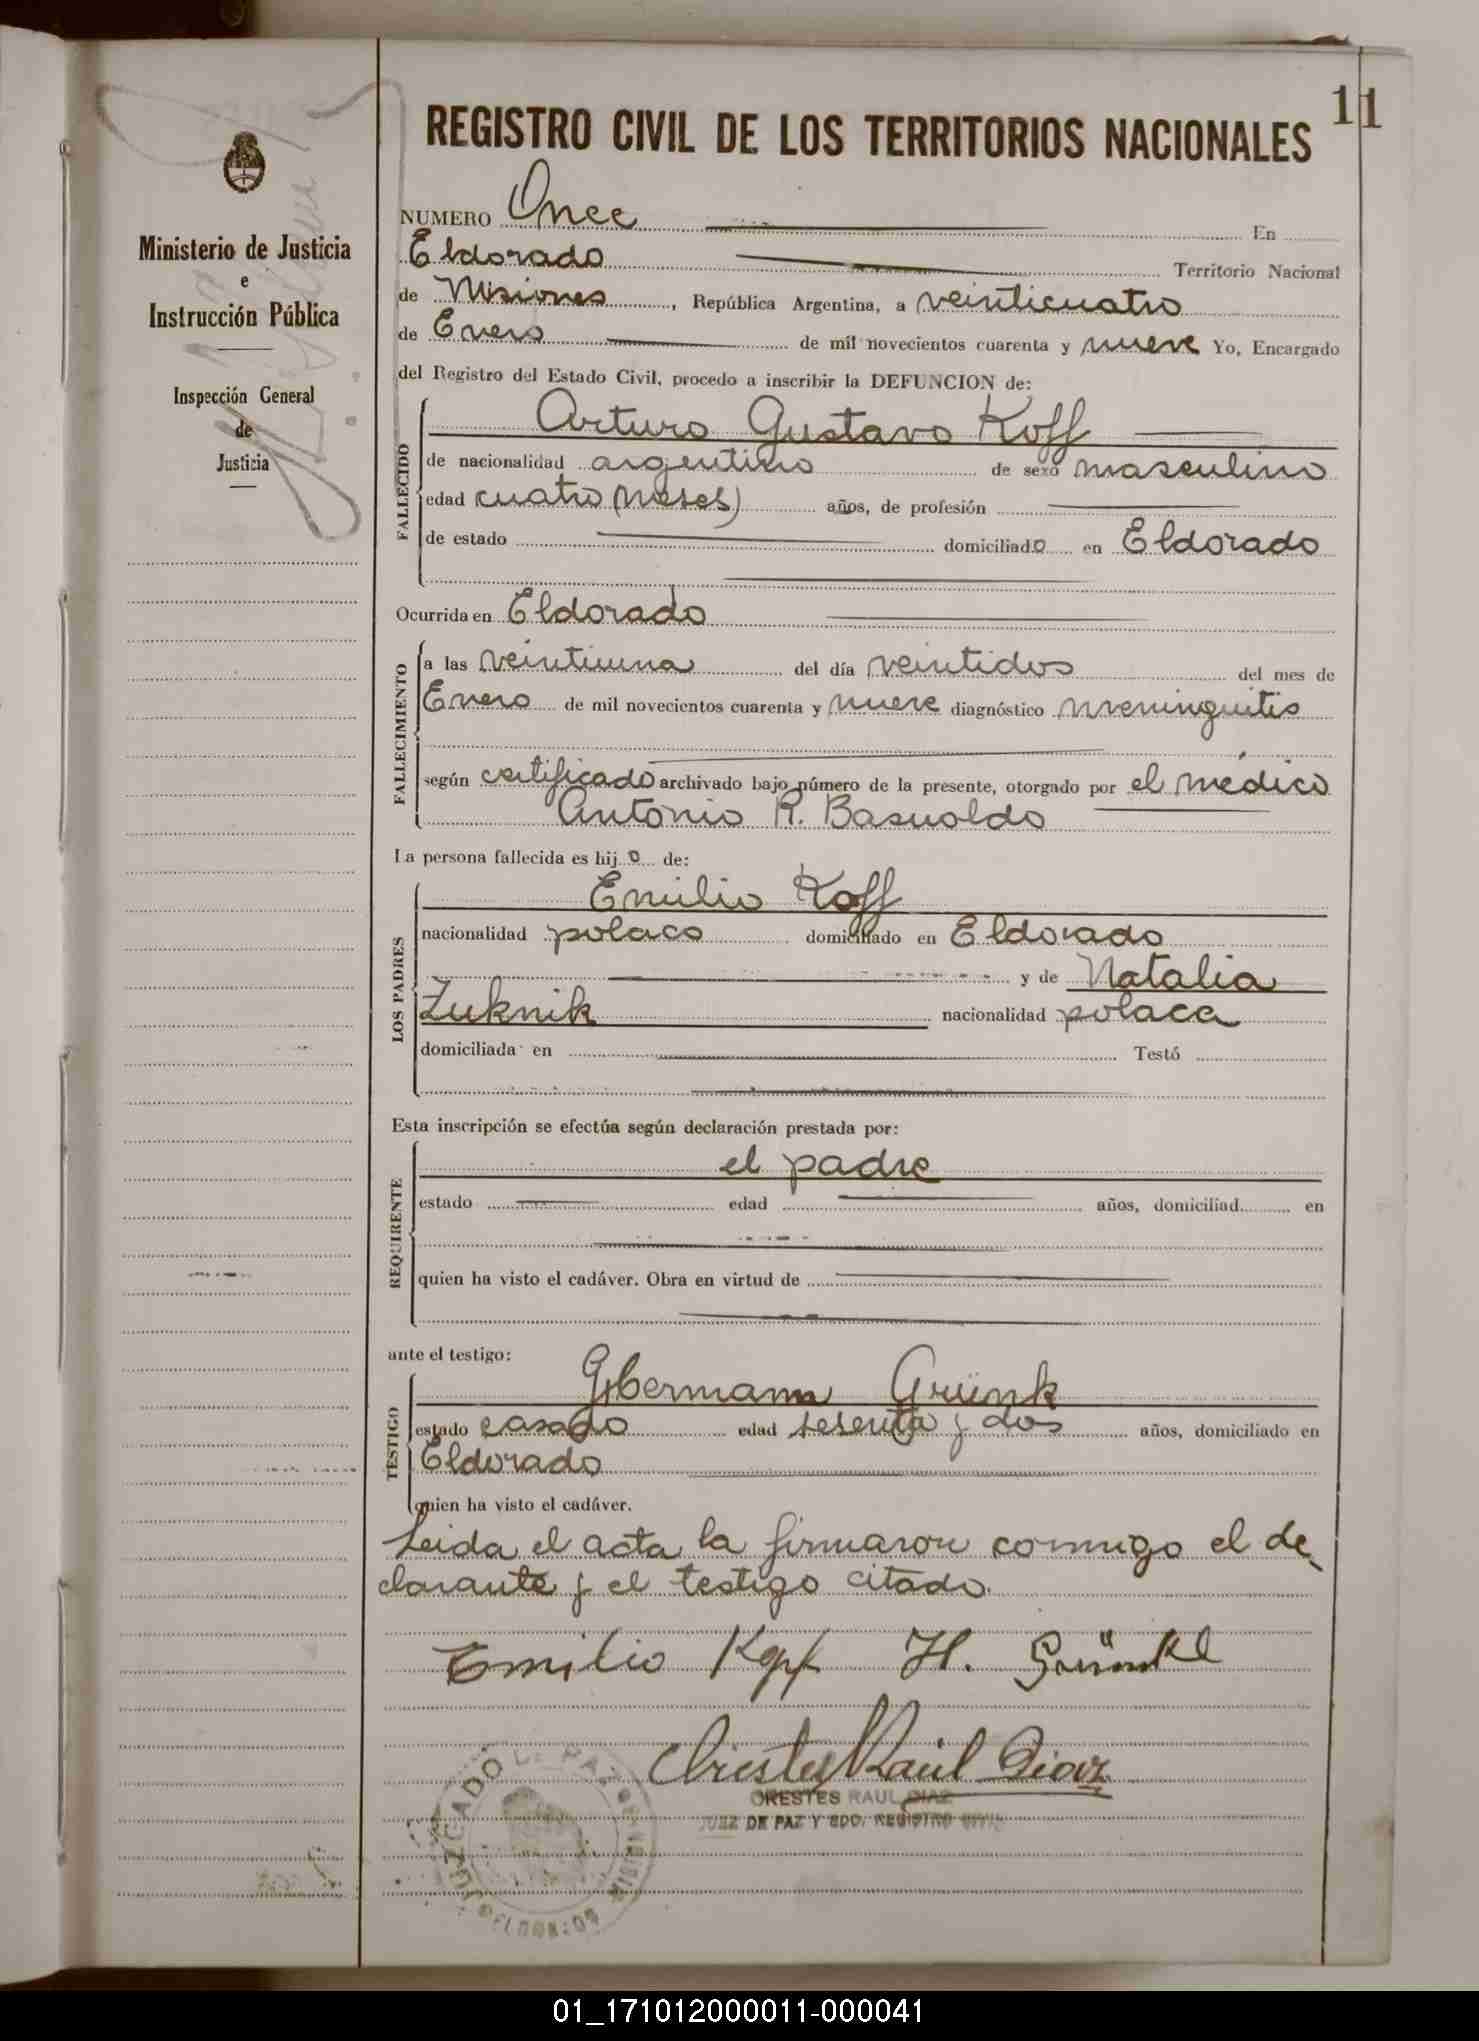 11
REGISTRO CIVIL DE LOS TERRITORIOS NACIONALES
Ministerio de Justicia
e
Instrucción Pública
Inspección General
de
Justicia
NUMERO Once En
Eldorado Territorio Nacional
de Misiones, República Argentina, a veinticuatro
de Enero de mil novecientos cuarenta y nueve Yo, Encargado
del Registro del Estado Civil, procedo a inscribir la DEFUNCION de:
FALLECIDO
Arturo Gustavo Koff
de nacionalidad argentino de sexo masculino
edad cuatro (meses) años, de profesión
de estado domiciliado en Eldorado
Ocurrida en Eldorado
FALLECIMIENTO
a las veintiuna del día veintidos del mes de
Enero de mil novecientos cuarenta y nueve diagnóstico meninguitis
según certificado archivado bajo número de la presente, otorgado por el médico
Antonio R. Basualdo
La persona fallecida es hijo de:
LOS PADRES
Emilio Koff
nacionalidad polaco domiciliado en Eldorado
y de Natalia
Zuknik nacionalidad polaca
domiciliada en Testó
Esta inscripción se efectúa según declaración prestada por:
REQUIRENTE
el padre
estado edad años, domiciliad en
quien ha visto el cadáver. Obra en virtud de
ante el testigo:
TESTIGO
Hermann Grünk
estado casado edad sesenta y dos años, domiciliado en
Eldorado
quien ha visto el cadáver.
Leida el acta la firmaron conmigo el de
clarante y el testigo citado.
Emilio Kopf H.
Orestes Raúl Diaz
ORESTES RAUL DIAZ
JUEZ DE PAZ Y EDO. REGISTRO CIVIL
JUZGADO DE PAZ
ELDORADO
01_171012000011-000041